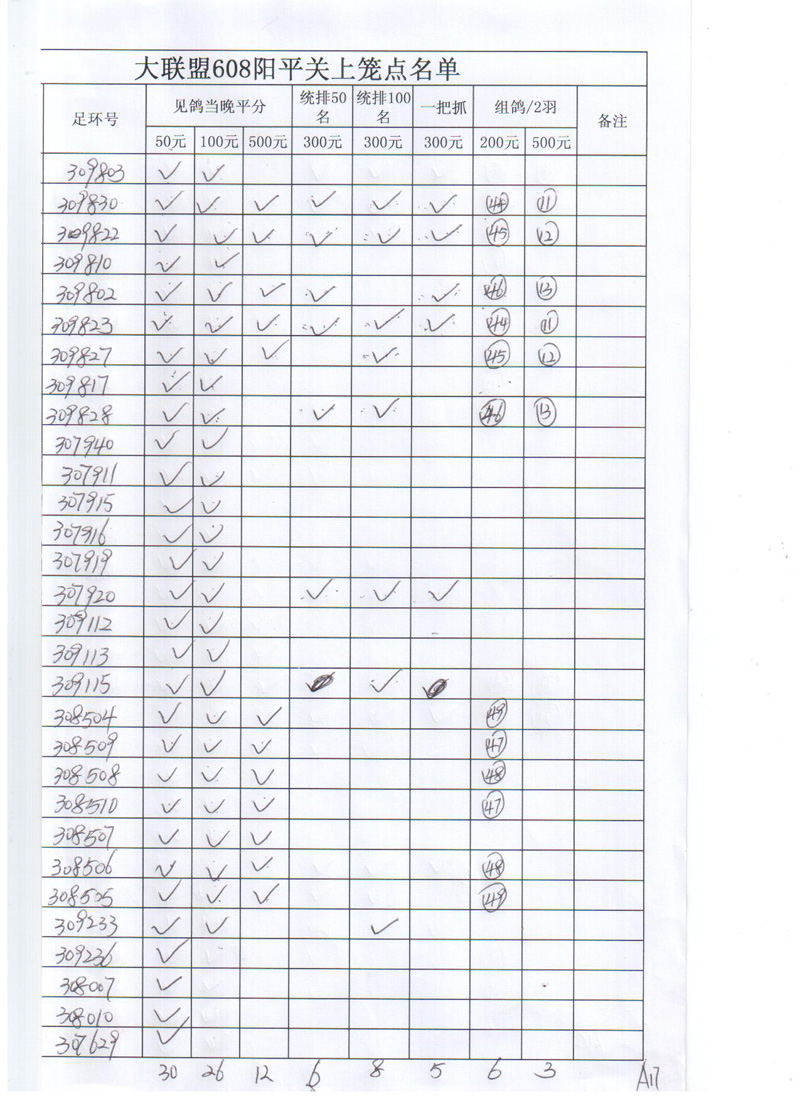 大联盟608阳平关上笼点名单
足环号 见鸽当晚平分 统排50名 统排100名 一把抓 组鸽/2羽 备注
50元 100元 500元 300元 300元 300元 200元 500元
309803 ✓ ✓
309830 ✓ ✓ ✓ ✓ ✓ ✓ ㊹ ⑪
309822 ✓ ✓ ✓ ✓ ✓ ✓ ㊺ ⑫
309810 ✓ ✓
309802 ✓ ✓ ✓ ✓ ✓ ㊻ ⑬
309823 ✓ ✓ ✓ ✓ ✓ ✓ ㊹ ⑪
309827 ✓ ✓ ✓ ✓ ㊺ ⑫
309817 ✓ ✓
309828 ✓ ✓ ✓ ✓ ㊻ ⑬
307940 ✓ ✓
307911 ✓ ✓
307915 ✓ ✓
307916 ✓ ✓
307919 ✓ ✓
307920 ✓ ✓ ✓ ✓ ✓
309112 ✓ ✓
309113 ✓ ✓
309115 ✓ ✓ ✓
308504 ✓ ✓ ✓ ㊾
308509 ✓ ✓ ✓ ㊼
308508 ✓ ✓ ✓ ㊽
308510 ✓ ✓ ✓ ㊼
308507 ✓ ✓ ✓
308506 ✓ ✓ ✓ ㊽
308505 ✓ ✓ ✓ ㊾
309233 ✓ ✓ ✓
309236 ✓
308007 ✓
308010 ✓
307629 ✓
30 26 12 6 8 5 6 3 A17